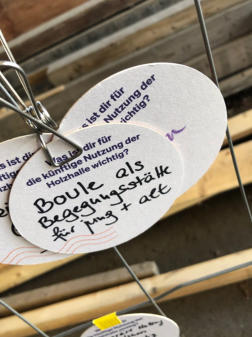 ist dir für
künftige Nutzung der
Holzhalle wichtig?
Was ist dir für
die künftige Nutzung der
Holzhalle wichtig?
Boule als
Begegnungsstätte
für jung + alt